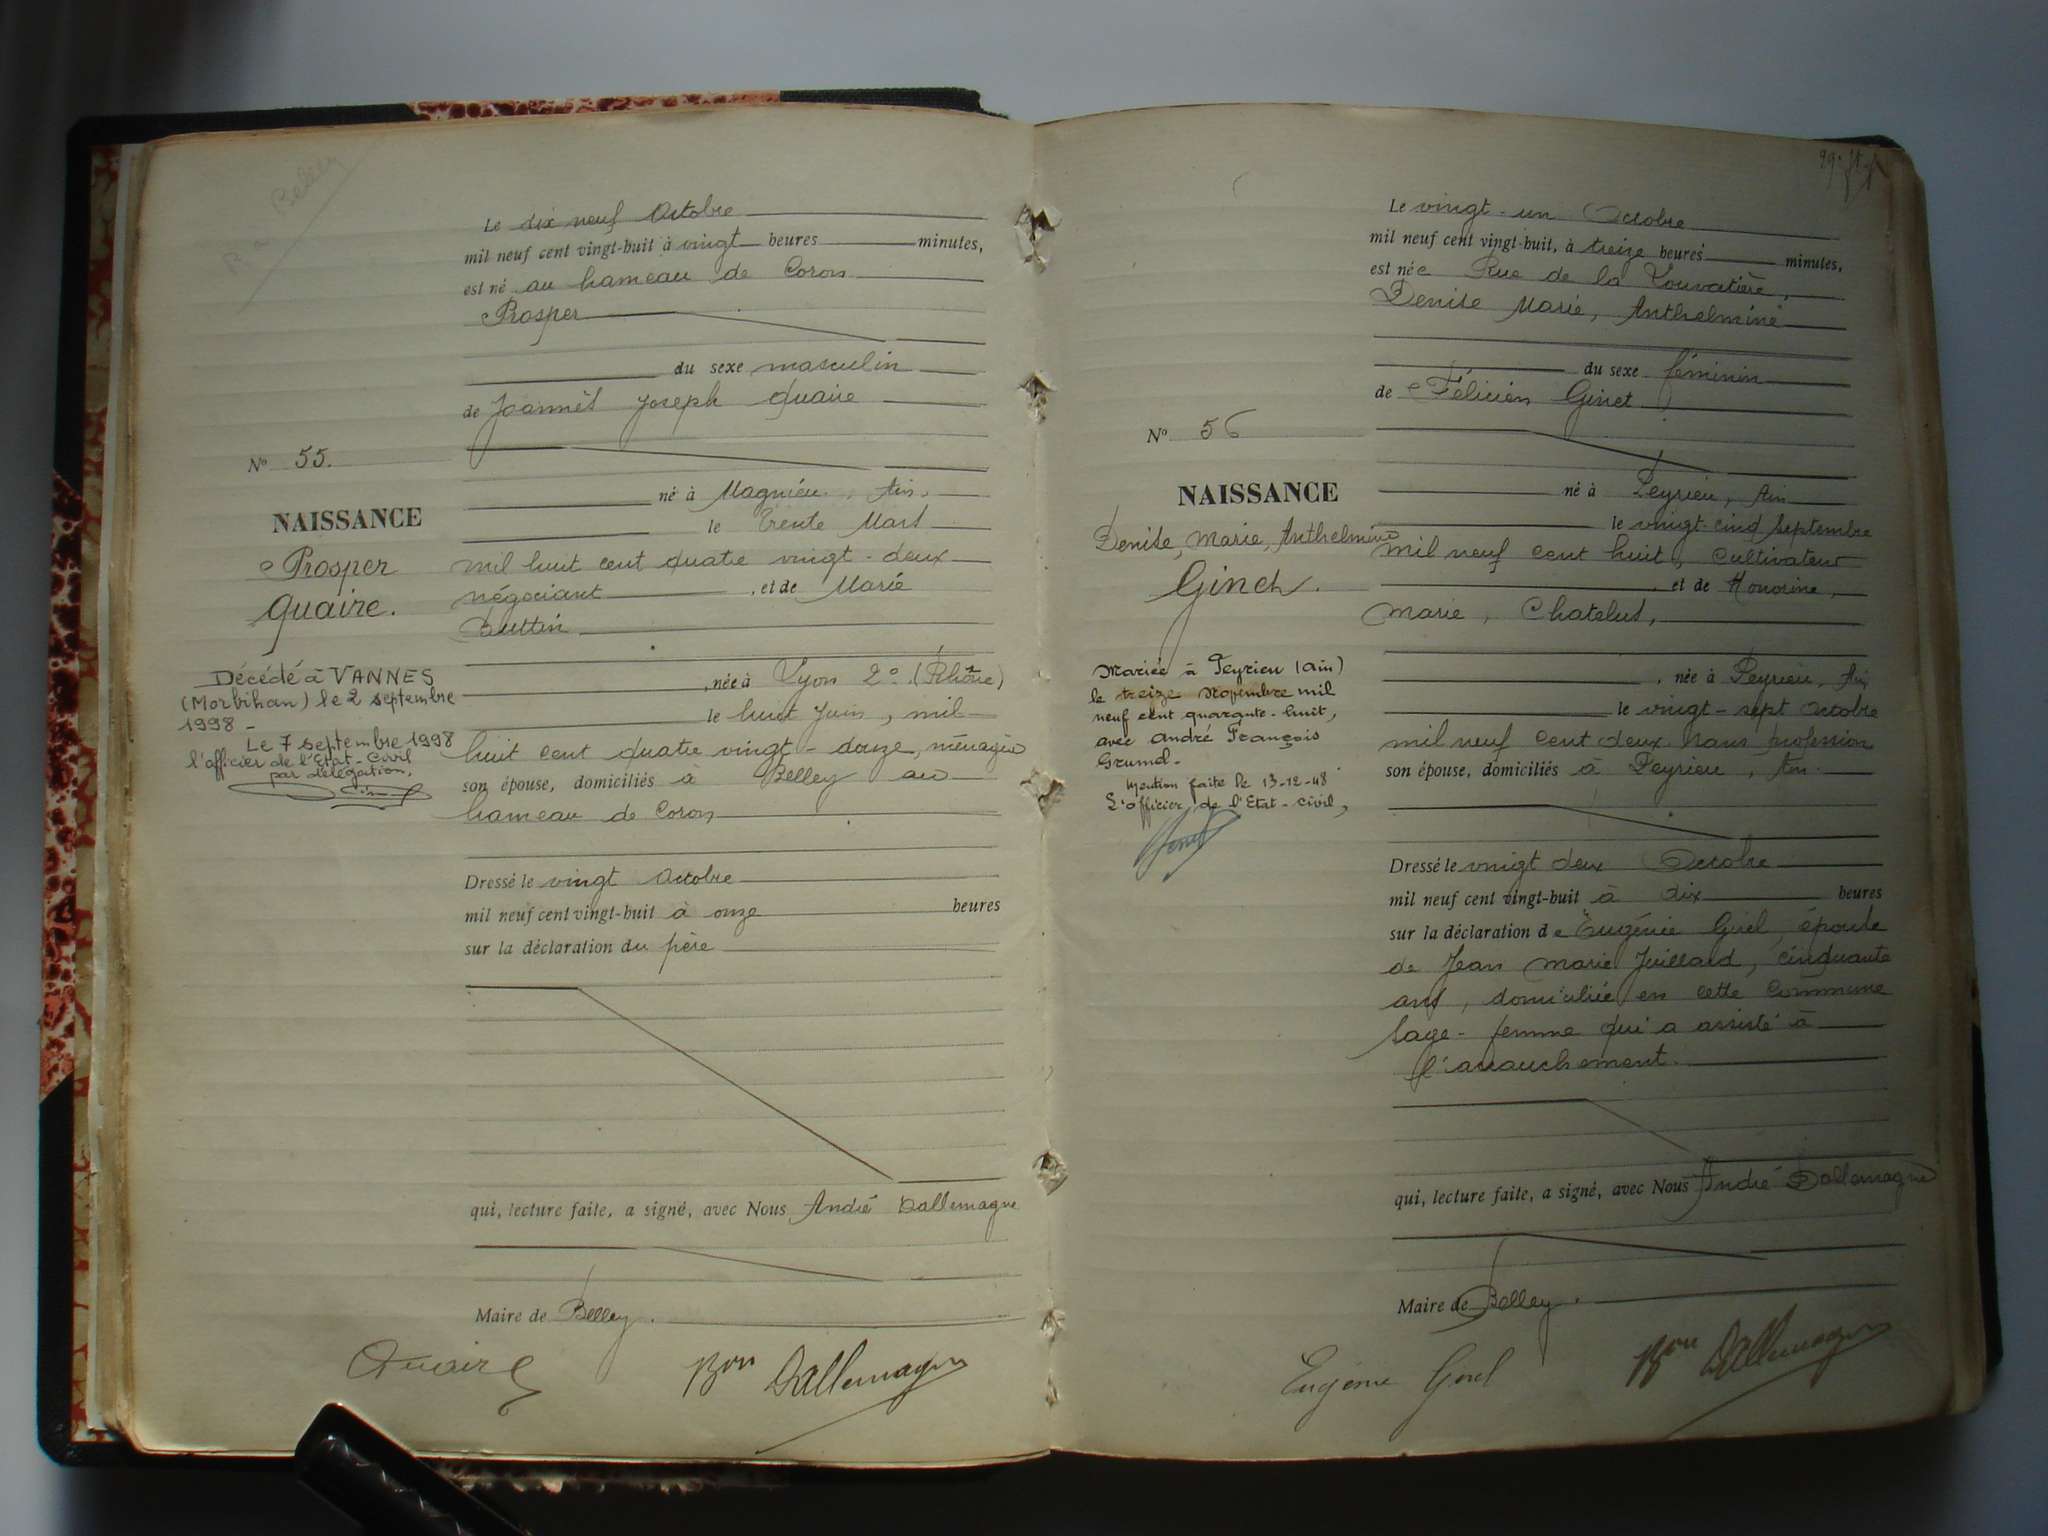 Belley
Le dix neuf Octobre
mil neuf cent vingt-huit à vingt heures minutes,
est né au hameau de Coron
Prosper
du sexe masculin
de Joannès Joseph Quaire
né à Magnieu, Ain,
le trente Mars
mil huit cent quatre vingt-deux
négociant, et de Marie
Buttin
, née à Lyon 2e (Rhône)
le huit Juin, mil
huit cent quatre vingt-douze, ménagère
son épouse, domiciliés à Belley au
hameau de Coron
Dressé le vingt Octobre
mil neuf cent vingt-huit à onze heures
sur la déclaration du père
qui, lecture faite, a signé, avec Nous André Dallemagne
Maire de Belley.
Quaire Bon Dallemagne
No 55.
NAISSANCE
Prosper
Quaire.
Décédé à VANNES
(Morbihan) le 2 septembre
1998 -
Le 7 septembre 1998
l'officier de l'Etat-Civil
par délégation,
Le vingt-un Octobre
mil neuf cent vingt-huit, à treize heures minutes,
est née Rue de la
Denise Marie, Anthelmine
du sexe féminin
de Félicien Ginet
né à Peyrieu, Ain
le vingt-cinq Septembre
mil neuf cent huit, Cultivateur
, et de Honorine,
Marie, Chatelus,
, née à Peyrieu, Ain
le vingt-sept Octobre
mil neuf cent deux, sans profession
son épouse, domiciliés à Peyrieu, Ain.
Dressé le vingt deux Octobre
mil neuf cent vingt-huit à dix heures
sur la déclaration de Eugénie Girel, épouse
de Jean Marie Juillard, cinquante
ans, domiciliée en cette Commune
sage-femme qui a assisté à
l'accouchement.
qui, lecture faite, a signé, avec Nous André Dallemagne
Maire de Belley.
Eugénie Girel Bon Dallemagne
No 56
NAISSANCE
Denise, Marie, Anthelmine
Ginet.
Mariée à Peyrieu (Ain)
le treize Novembre mil
neuf cent quarante-huit,
avec André François
Grumel-
Mention faite le 13-12-48
L'officier de l'Etat-civil,